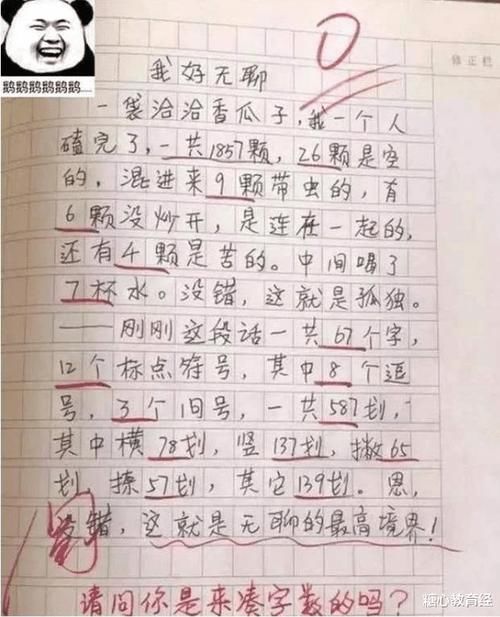 鹅鹅鹅鹅鹅鹅....
0
修正栏
我好无聊
一袋洽洽香瓜子，我一个人
磕完了，一共1857颗，26颗是空
的，混进来9颗带虫的，有
6颗没炒开，是连在一起的，
还有4颗是苦的。中间喝了
7杯水。没错，这就是孤独。
——刚刚这段话一共67个字，
12个标点符号，其中8个逗
号，3个句号，一共587划，
其中横78划，竖137划，撇65
划，捺57划，其它139划。恩，
没错，这就是无聊的最高境界！
阅
请问你是来凑字数的吗？
糖心教育经